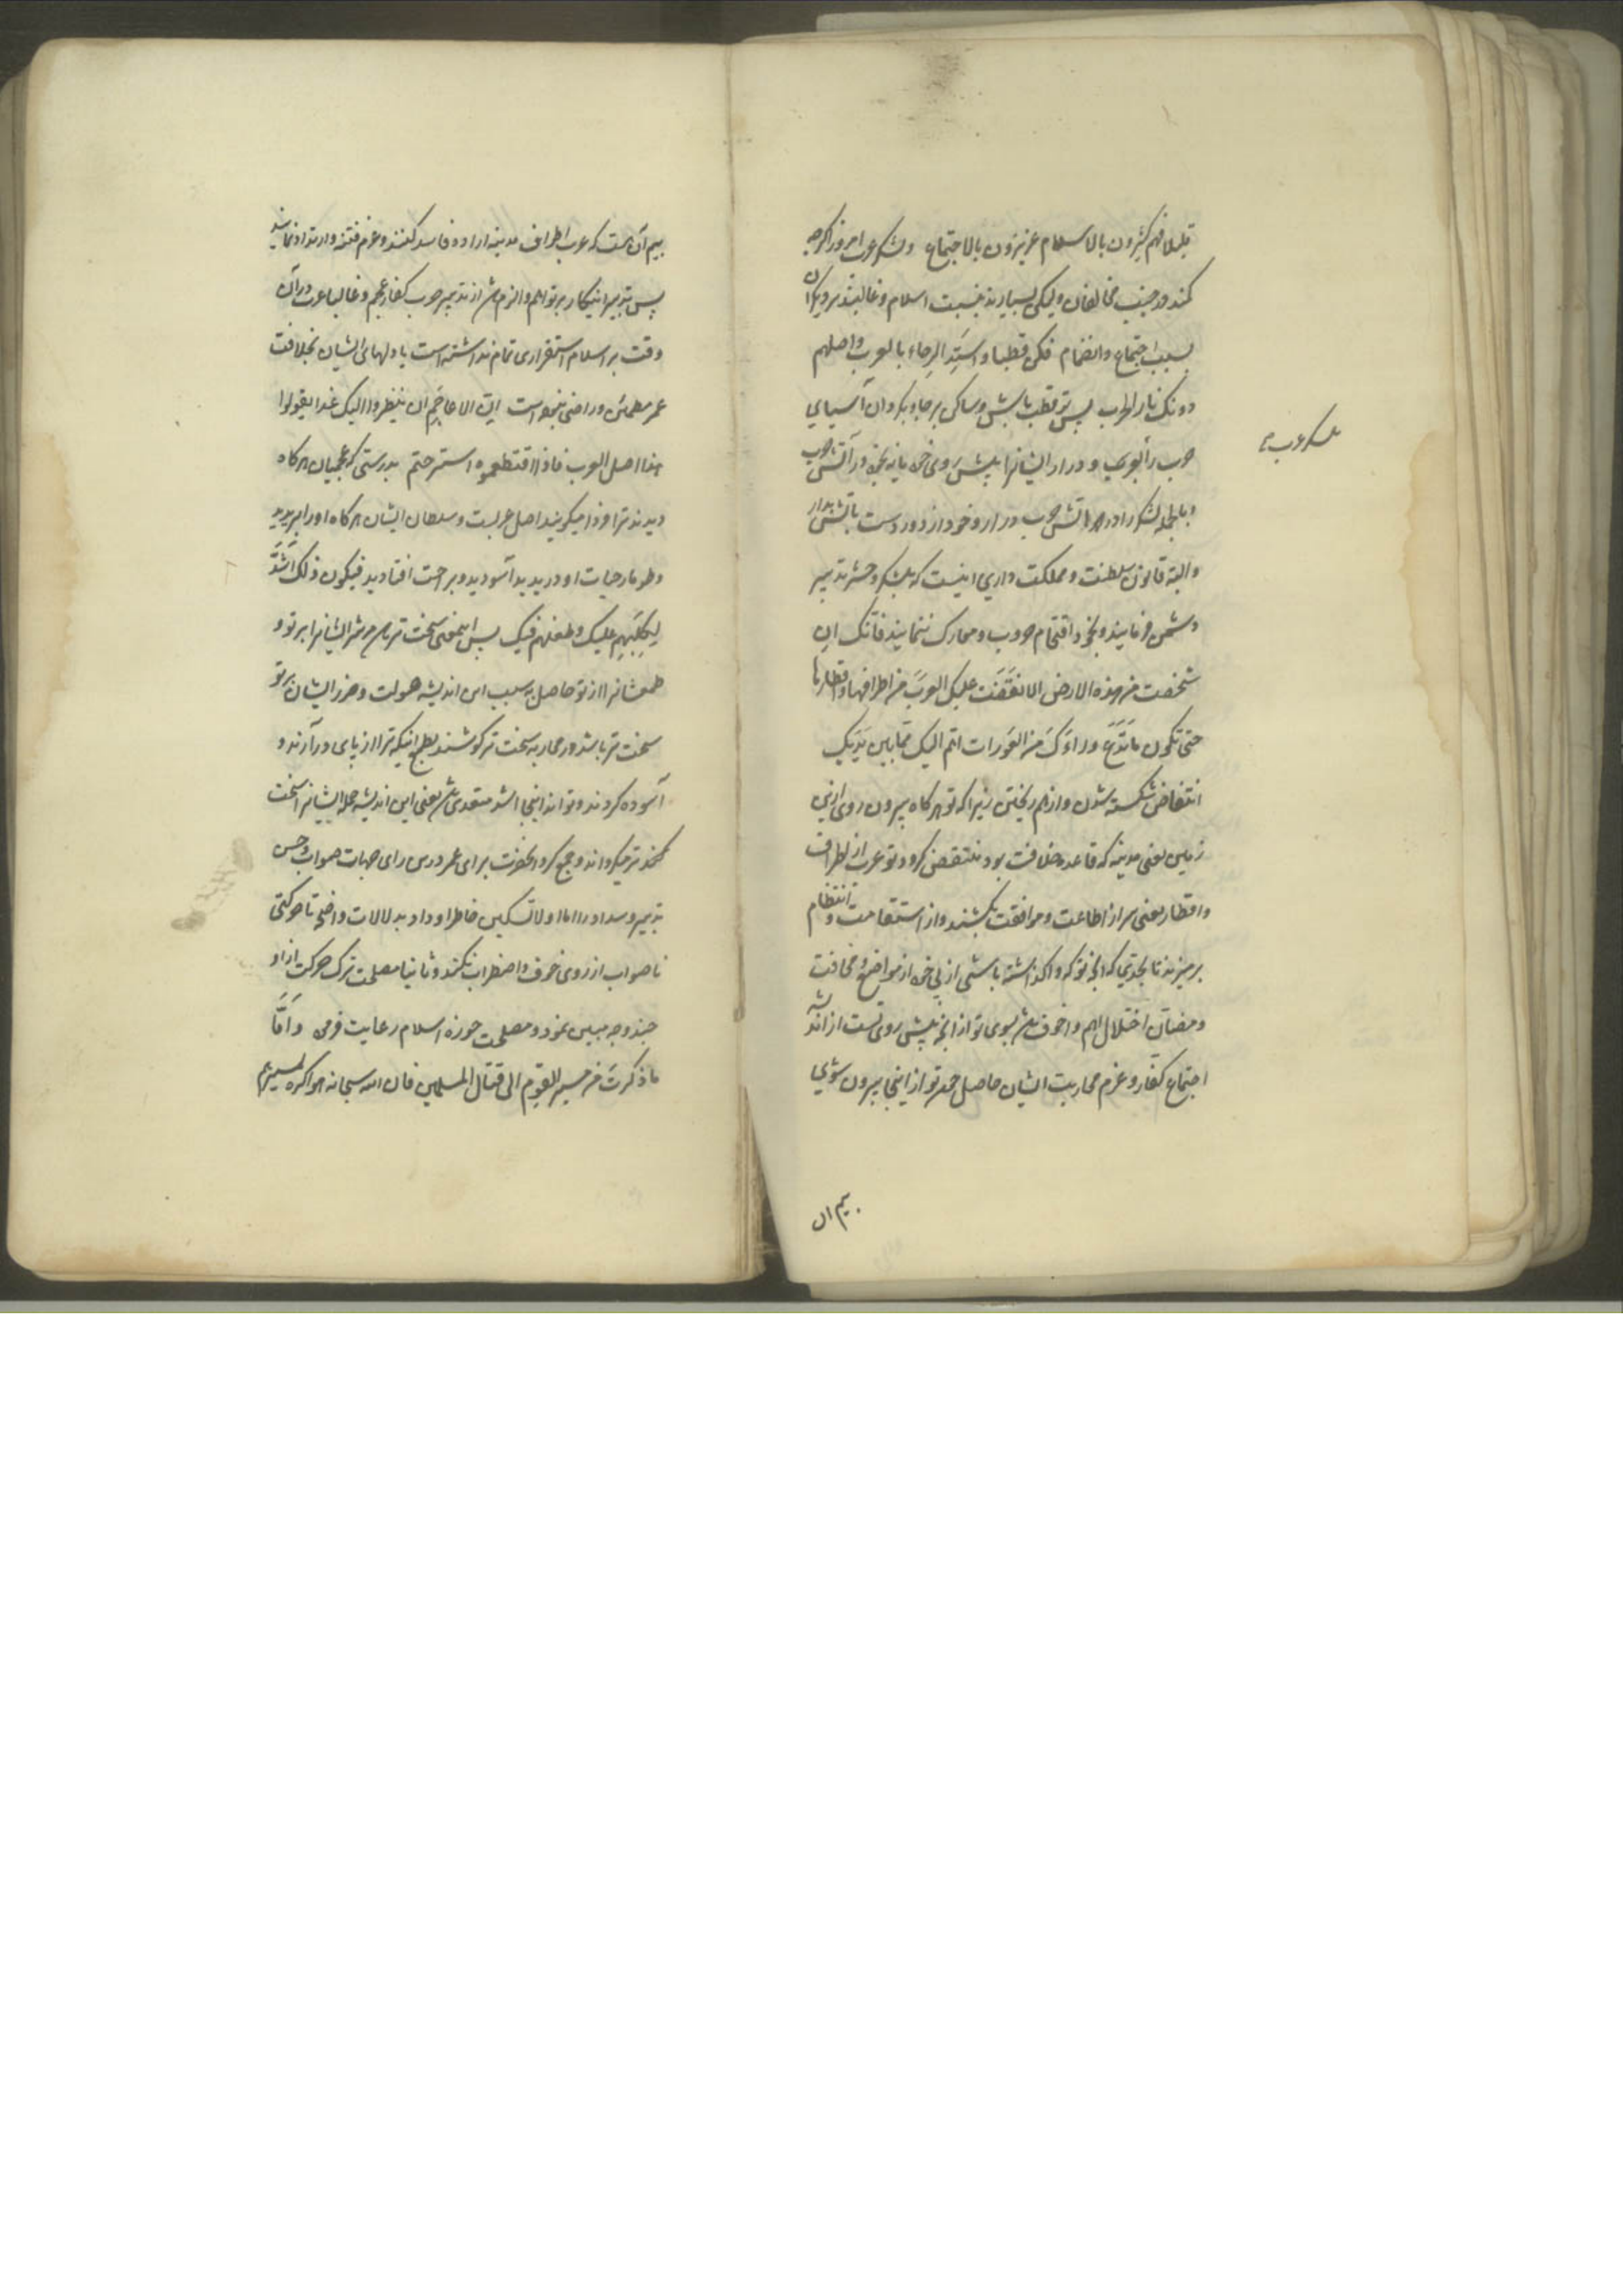 قلیلا فهم کثیرون بالاسلام عزیزون بالاجتماع ولشکر عرب امروز اگرچه
کمند در جنب مخالفان ولیکن بسیارند بنسبت اسلام و غالبند بر دیگران
بسبب اجتماع و انضمام فکن قطبا و استدر الرحاء بالعرب واصلهم
دونک نار الحرب پس تو قطب باش و ساکن بر جا و بگردان آسیای
حرب را بعرب و در ار ایشانرا پیش روی خود یا نه بخود در آتش حرب
وبالجمله لشکر را در آتش حرب در ار و خود از دور دست باتش بدار
والبته قانون سلطنت و مملکت داری اینست که بلشکر و حشر تدبیر
دشمن فرمایند و بخود اقتحام حروب و معارک ننمایند فانک ان
شخصت من هذه الارض الا انتقضت علیک العرب من اطرافها و اقطارها
حتی تکون ما تدع وراءک من العورات اهم الیک مما بین یدیک
انتقاض شکسته شدن و از هم ریختن زیرا که تو هر کاه بیرون روی ازین
زمین یعنی مدینه که قاعده خلافت بود منتقض کردد بتو عرب از اطراف
و اقطار یعنی سر از اطاعت و موافقت بکشند و از استقامت و انتظام
بر میزند تا بحدی که انچه تو کرد واکذاشته باشی از پی خود از مواضع مخافت
و مضان اختلال اهم و اخوف باشد بسوی تو از انچه پیش روی تست از اندیشه
اجتماع کفار و عزم محاربت ایشان حاصل چون تو از اینجا بیرون شوی
لشکر عرب
بیم ان
بیم آن هست که عرب اطراف مدینه اراده فاسد کنند و عزم فتنه و ارتداد نمایند
پس تدبیر اینکار بر تو اهم و الزم باشد از تدبیر حرب کفار عجم و غالبا عرب در آن
وقت بر اسلام استقراری تمام نداشته است یا دلهای ایشان بخلافت
عمر مطمئن و راضی نبوده است ان الاعاجم ان ینظروا الیک غدا یقولوا
هذا اصل العرب فاذا اقتطعموه استرحتم بدرستی که عجمیان هر کاه
دیدند ترا فردا میکویند اصل عربست و سلطان ایشان هر کاه او را ببرید
و طومار حیات او دریدید آسودید و براحت افتادید فیکون ذلک اشد
لکلبهم علیک و طمعهم فیک پس اینمعنی سخت تر باشد مر شر ایشانرا بر تو و
طمعشانرا از تو حاصل بسبب این اندیشه صولت و ضرر ایشان بر تو
سخت تر باشد و در محاربه سخت تر کوشند بطمع اینکه ترا از پای در آرند و
آسوده کردند و تواند اینجا اشد متعدی باشد یعنی این اندیشه حمله ایشانرا سخت
کند تر میکرداند و جمع کرد انحضرت برای عمر درین رای جهات صواب و حسن
تدبیر و سداد را اما اولا تسکین خاطر او داد بدلالات واضح تا حرکتی
ناصواب از روی خوف و اضطراب نکند و ثانیا مصلحت ترک حرکت از او
چند وجه مبین نمود و مصلحت حوزه اسلام رعایت فرمود و اما
ما ذکرت من مسیر القوم الی قتال المسلمین فان الله سبحانه هو اکره لمسیرهم